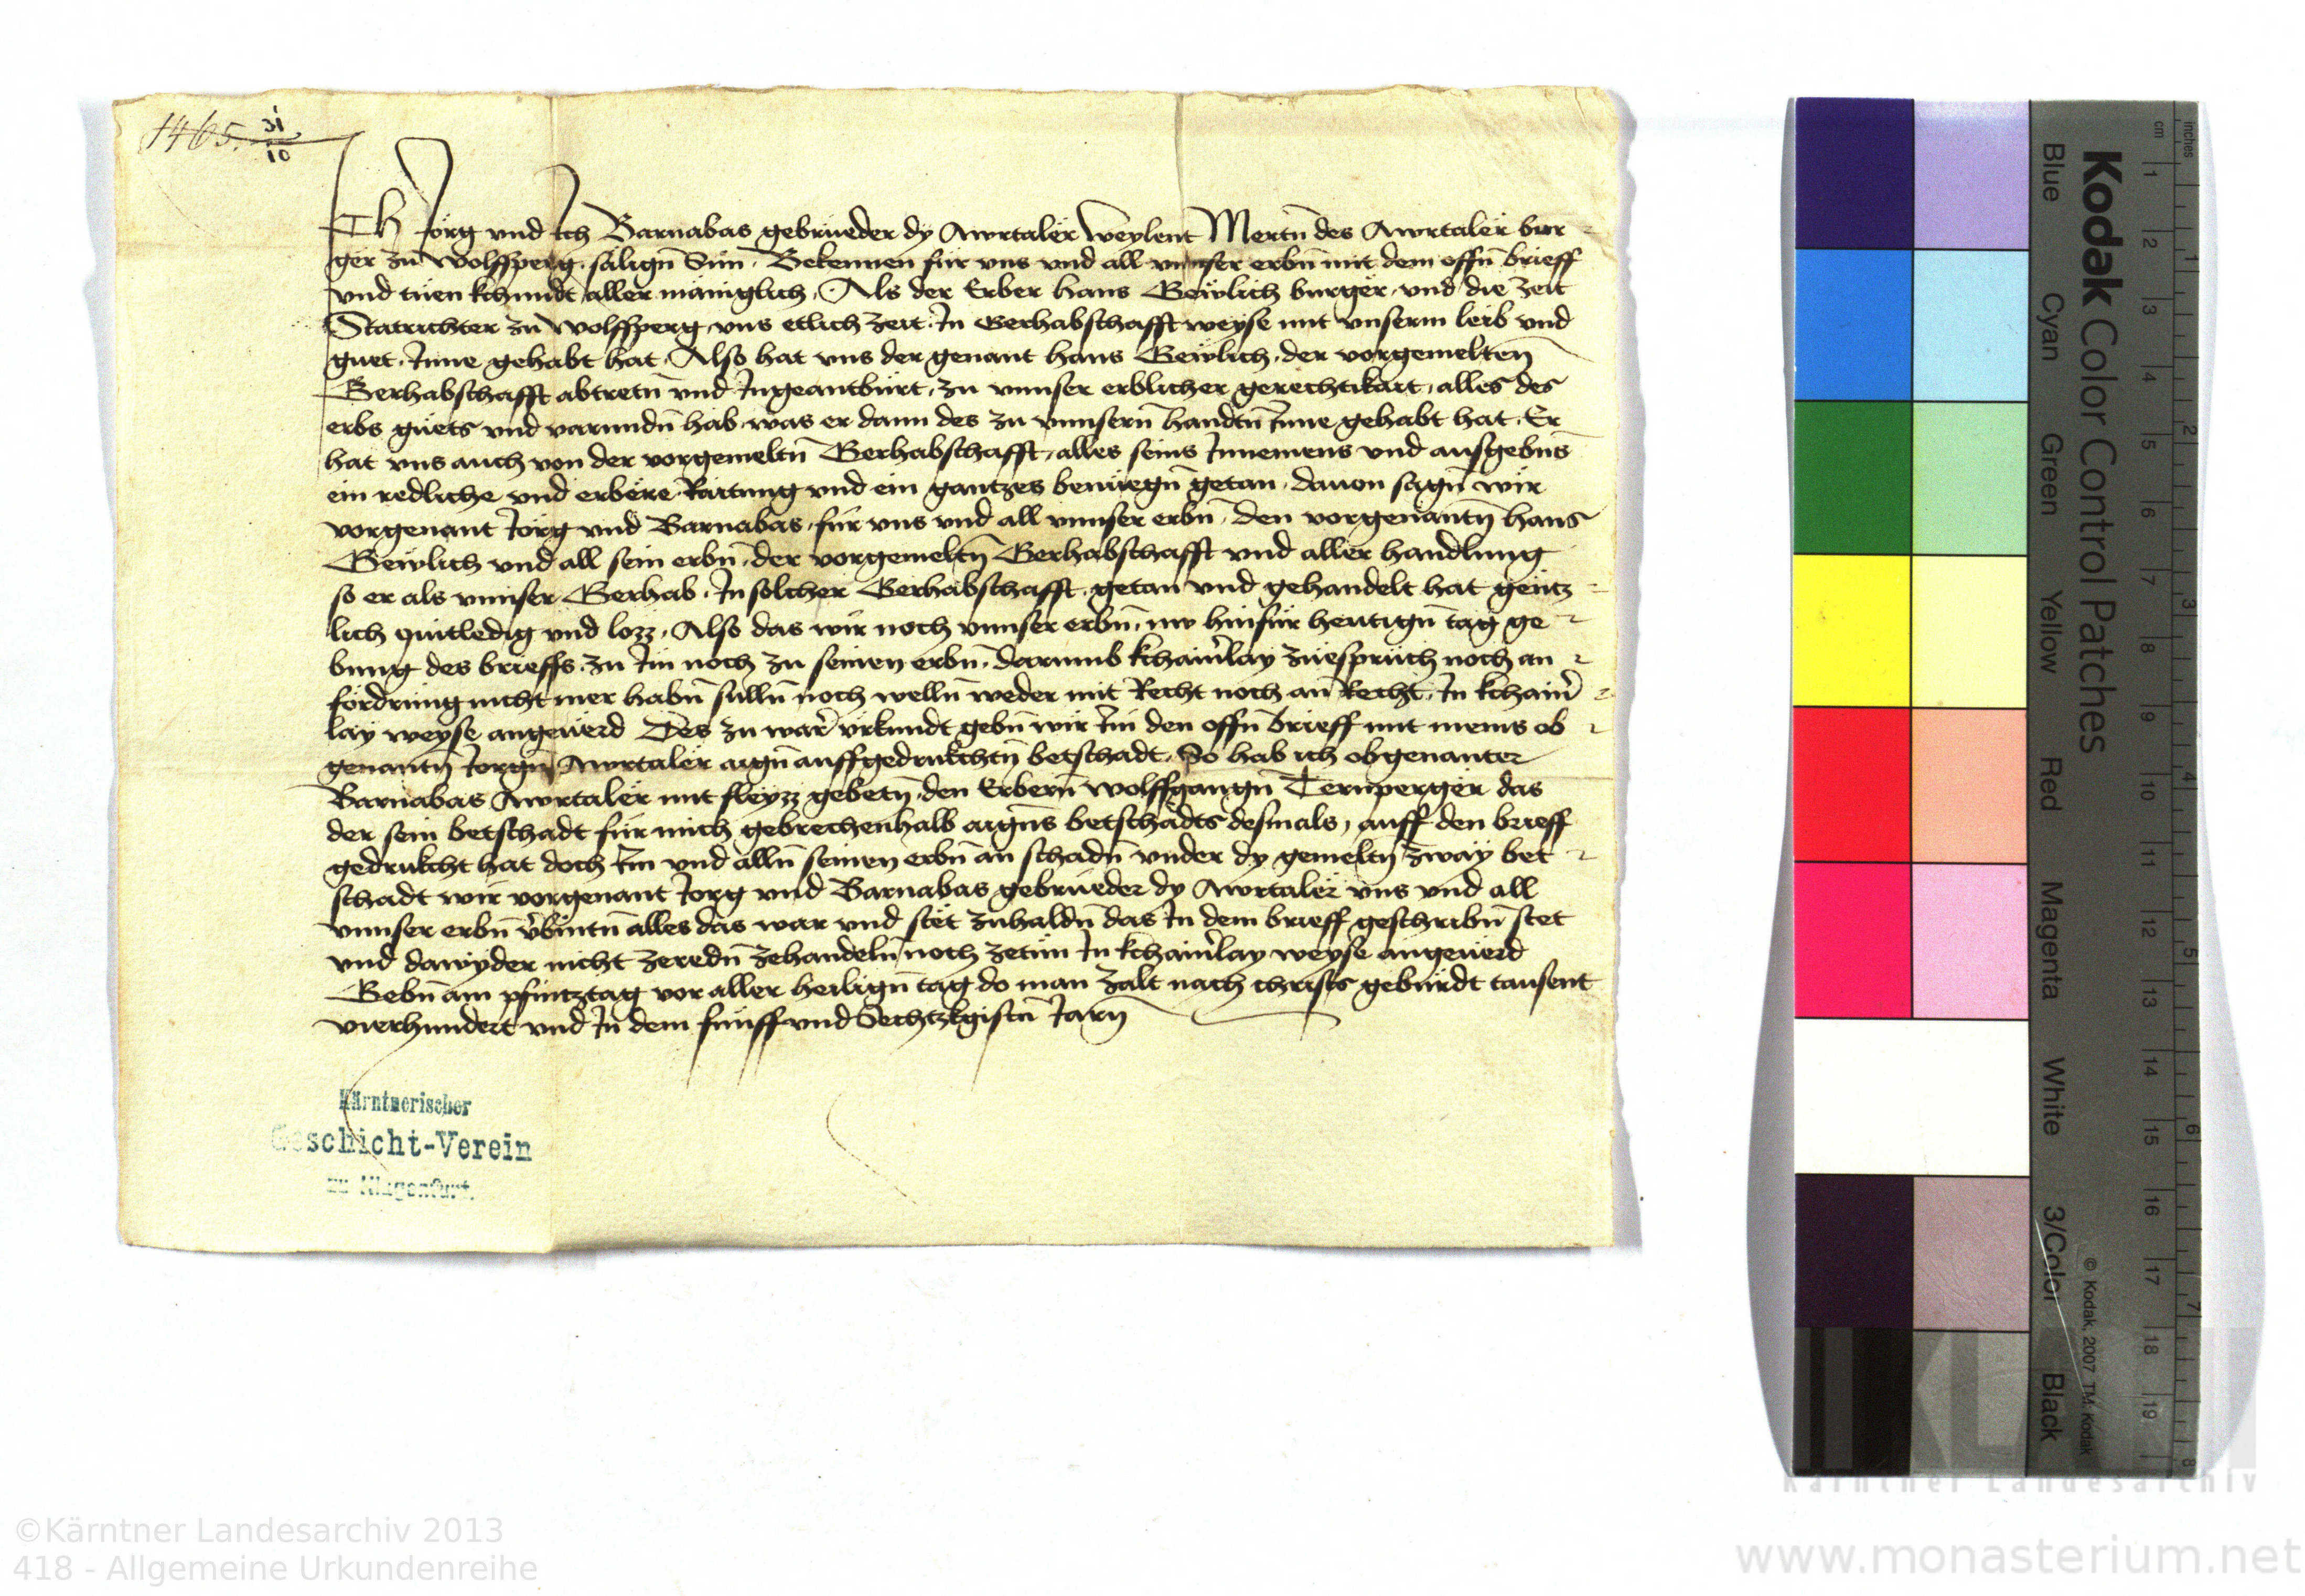 1465. 31/10
Ich Jörg vnd Ich Barnabas gebrüeder dy Awrtaler weylent Mertn̄ des Awrtaler bur
ger zu Wolffperg salign̄ Sün Bekennen für vns vnd all vnnser erbn̄ mit dem offn̄ brieff
vnd tüen kchundt aller maniglich, Als der Erber hans Gewlich burger vnd die zeit
Statrichter zu Wolffperg vns etlich zeit In Gerhabschafft weyse mit vnserm leib vnd
guet Inne gehabt hat Also hat vns der genant hans Gewlich der vorgemelten̄
Gerhabschafft abtretn̄ vnd Ingeantbürt zu vnnser erblicher gerechtikait alles des
erbs guets vnd varundn̄ hab was er dann des zu vnnsern̄ handtn̄ Inne gehabt hat Er
hat vns auch von der vorgemeltn̄ Gerhabschafft alles seins Innemens vnd ausgebn̄s
ein redliche vnd erbere Raittung vnd ein gantzes benüegn̄ getan dauon sagn̄ wir
vorgenant Jörg vnd Barnabas für vns vnd all vnnser erbn̄ den vorgenantn̄ hans
Gewlich vnd all sein erbn̄ der vorgemeltn̄ Gerhabschafft vnd aller handlung
so er als vnnser Gerhab In solcher Gerhabschafft getan vnd gehandelt hat gentz
lich quitledig vnd lozz, Also das wir noch vnnser erbn̄ nw hinfür heutign̄ tag ge
bung des brieffs zu Im noch zu seinen erbn̄ darumb kchainˀlay züesprüch noch an
fördrung nicht mer habn̄ sulln̄ noch welln̄ weder mit Recht noch an Recht In kchainˀ
lay weyse angeuerd Des zu warˀ vrkundt gebn̄ wir Im den offn̄ brieff mit meins ob
genantn̄ Jorgn̄ Awrtaler aign̄ auffgedrukchtn̄ betschadt So hab ich obgenanter
Barnabas Awrtaler mit fleyzz gebetn̄ den Erbern̄ Wolffgangn̄ Ternperger das
der sein betschadt für mich gebrechenhalb aigns betschadts desmals auff den brieff
gedrukcht hat doch Im vnd alln̄ seinen erbn̄ an schadn̄ vnder dy gemeltn̄ zway bet
schadt wir vorgenant Jorg vnd Barnabas gebrueder dy Awrtaler vns vnd all
vnnser erbn̄ vˀbintn̄ alles das war vnd stët zuhaldn̄ das In dem brieff geschribn̄ stet
vnd dawyder nicht zeredn̄ zehandeln̄ noch zetün In kchainˀlay weyse angeuerd
Gebn̄ am pfintztag vor aller heilign̄ tag do man zalt nach christs gebürdt tausent
vierhundert vnd In dem fünff vnd Sechtzkgistn̄ Jarn̄
Kärntnerischer
Geschicht-Verein
zu Klagenfurt.
Kodak Color Control Patches
Blue Cyan Green Yellow Red Magenta White 3/Color Black
© Kodak, 2007 TM: Kodak
inches 1 2 3 4 5 6 7 8
cm 1 2 3 4 5 6 7 8 9 10 11 12 13 14 15 16 17 18 19
Kärntner Landesarchiv
©Kärntner Landesarchiv 2013
418 - Allgemeine Urkundenreihe
www.monasterium.net